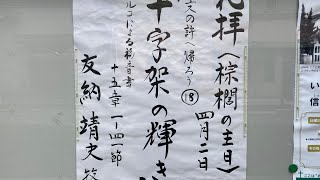 礼拝〈棕櫚の主日〉
四月二日
父の許へ帰ろう⑱
十字架の輝き
マルコによる福音書
十五章 一-四一節
友納靖史
い
信